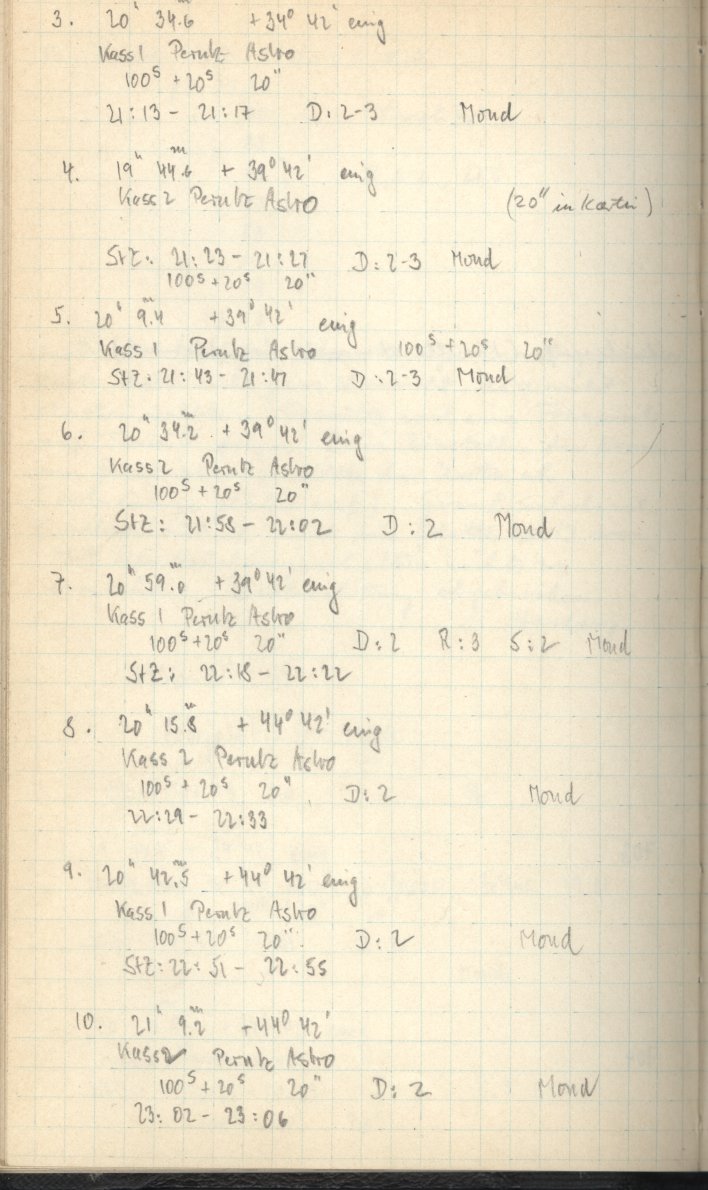 3. 20ʰ 34.6ᵐ +34⁰ 42' einig
Kass 1 Perutz Astro
100ˢ + 20ˢ 20"
21:13 - 21:17 D: 2-3 Mond
4. 19ʰ 44.6ᵐ + 39⁰ 42' einig
Kass 2 Perutz Astro (20" in Kartei)
StZ: 21:23 - 21:27 D: 2-3 Mond
100ˢ + 20ˢ 20"
5. 20ʰ 9.4ᵐ +39⁰ 42' einig
Kass 1 Perutz Astro 100ˢ + 20ˢ 20"
StZ. 21:43 - 21:47 D: 2-3 Mond
6. 20ʰ 34.2ᵐ + 39⁰ 42' einig
Kass 2 Perutz Astro
100ˢ + 20ˢ 20"
StZ: 21:58 - 22:02 D: 2 Mond
7. 20ʰ 59.0ᵐ + 39⁰ 42' einig
Kass 1 Perutz Astro
100ˢ + 20ˢ 20" D: 2 R: 3 S: 2 Mond
StZ: 22:18 - 22:22
8. 20ʰ 15.8ᵐ + 44⁰ 42' einig
Kass 2 Perutz Astro
100ˢ + 20ˢ 20" D: 2 Mond
22:29 - 22:33
9. 20ʰ 42.5ᵐ + 44⁰ 42' einig
Kass 1 Perutz Astro
100ˢ + 20ˢ 20" D: 2 Mond
StZ: 22:51 - 22:55
10. 21ʰ 9.2ᵐ + 44⁰ 42'
Kass 2 Perutz Astro
100ˢ + 20ˢ 20" D: 2 Mond
23:02 - 23:06